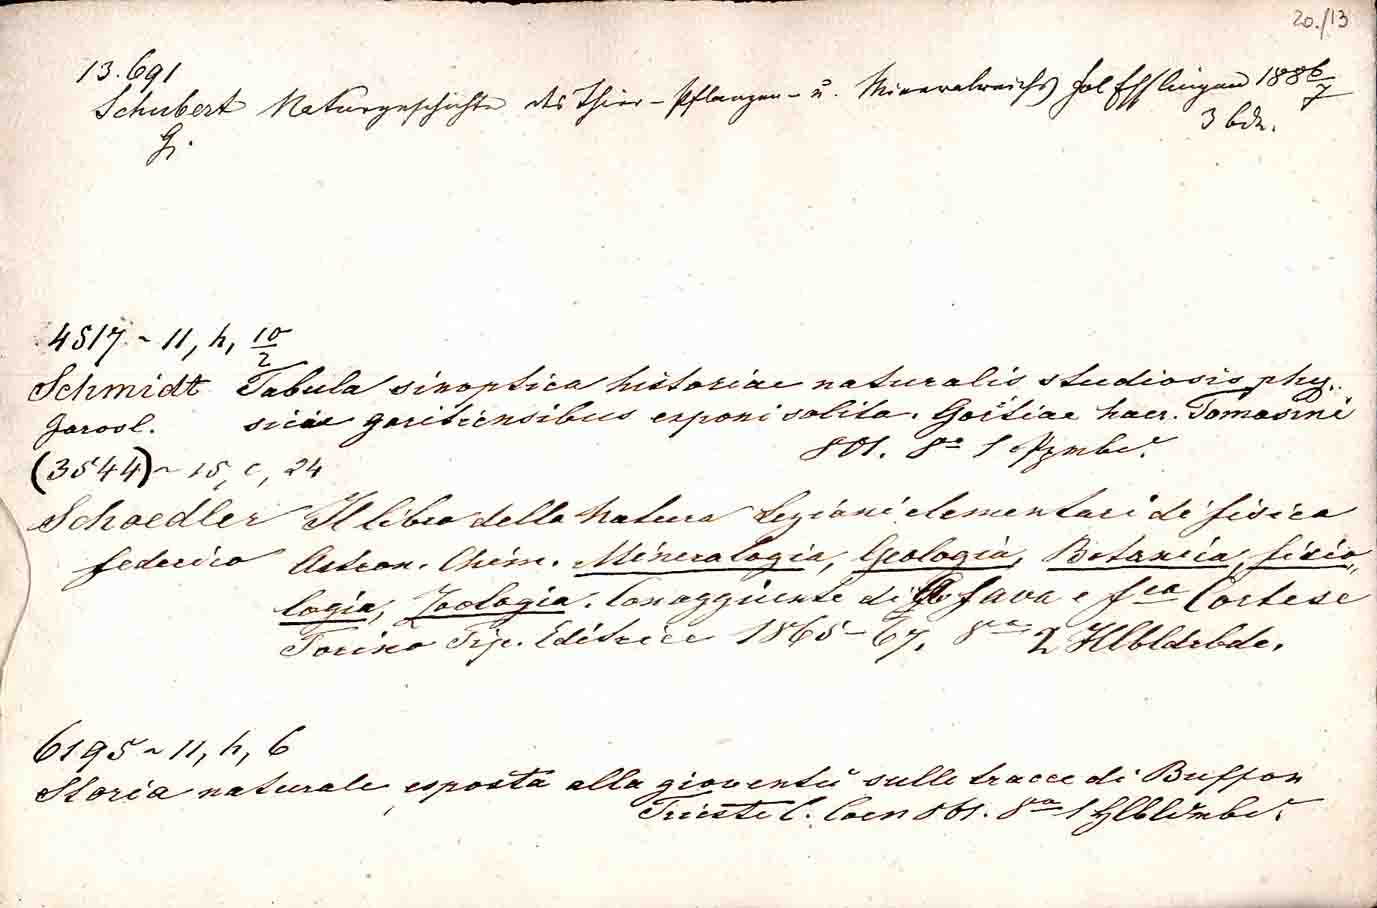 20./13
13.691
Schubert Naturgeschichte des Thier- Pflanzen- u. Mineralreichs fol Esslingen 1886/7
G. 3 bde.
4517 ~ 11, h, 10/2
Schmidt Tabula sinoptica historiae naturalis studiosis phy-
Jarosl. sicae goritiensibus exponi solita. Goritiae haer. Tomasini
801. 8º 1
(3544) ~ 15, c, 24
Schoedler Il libro della Natura Lezioni elementari di fisica
federico Astron. Chim. Mineralogia, Geologia, Botanica, fisio-
logia, Zoologia. Conaggiunte di Fava e fco Cortese
Torino Tip. Editrice 1865-67. 8º 2 Hlbldrbde.
6195 ~ 11, h, 6
Storia naturale esposta alla gioventù sulle tracce di Buffon
Trieste C. Coen 861. 8º 1